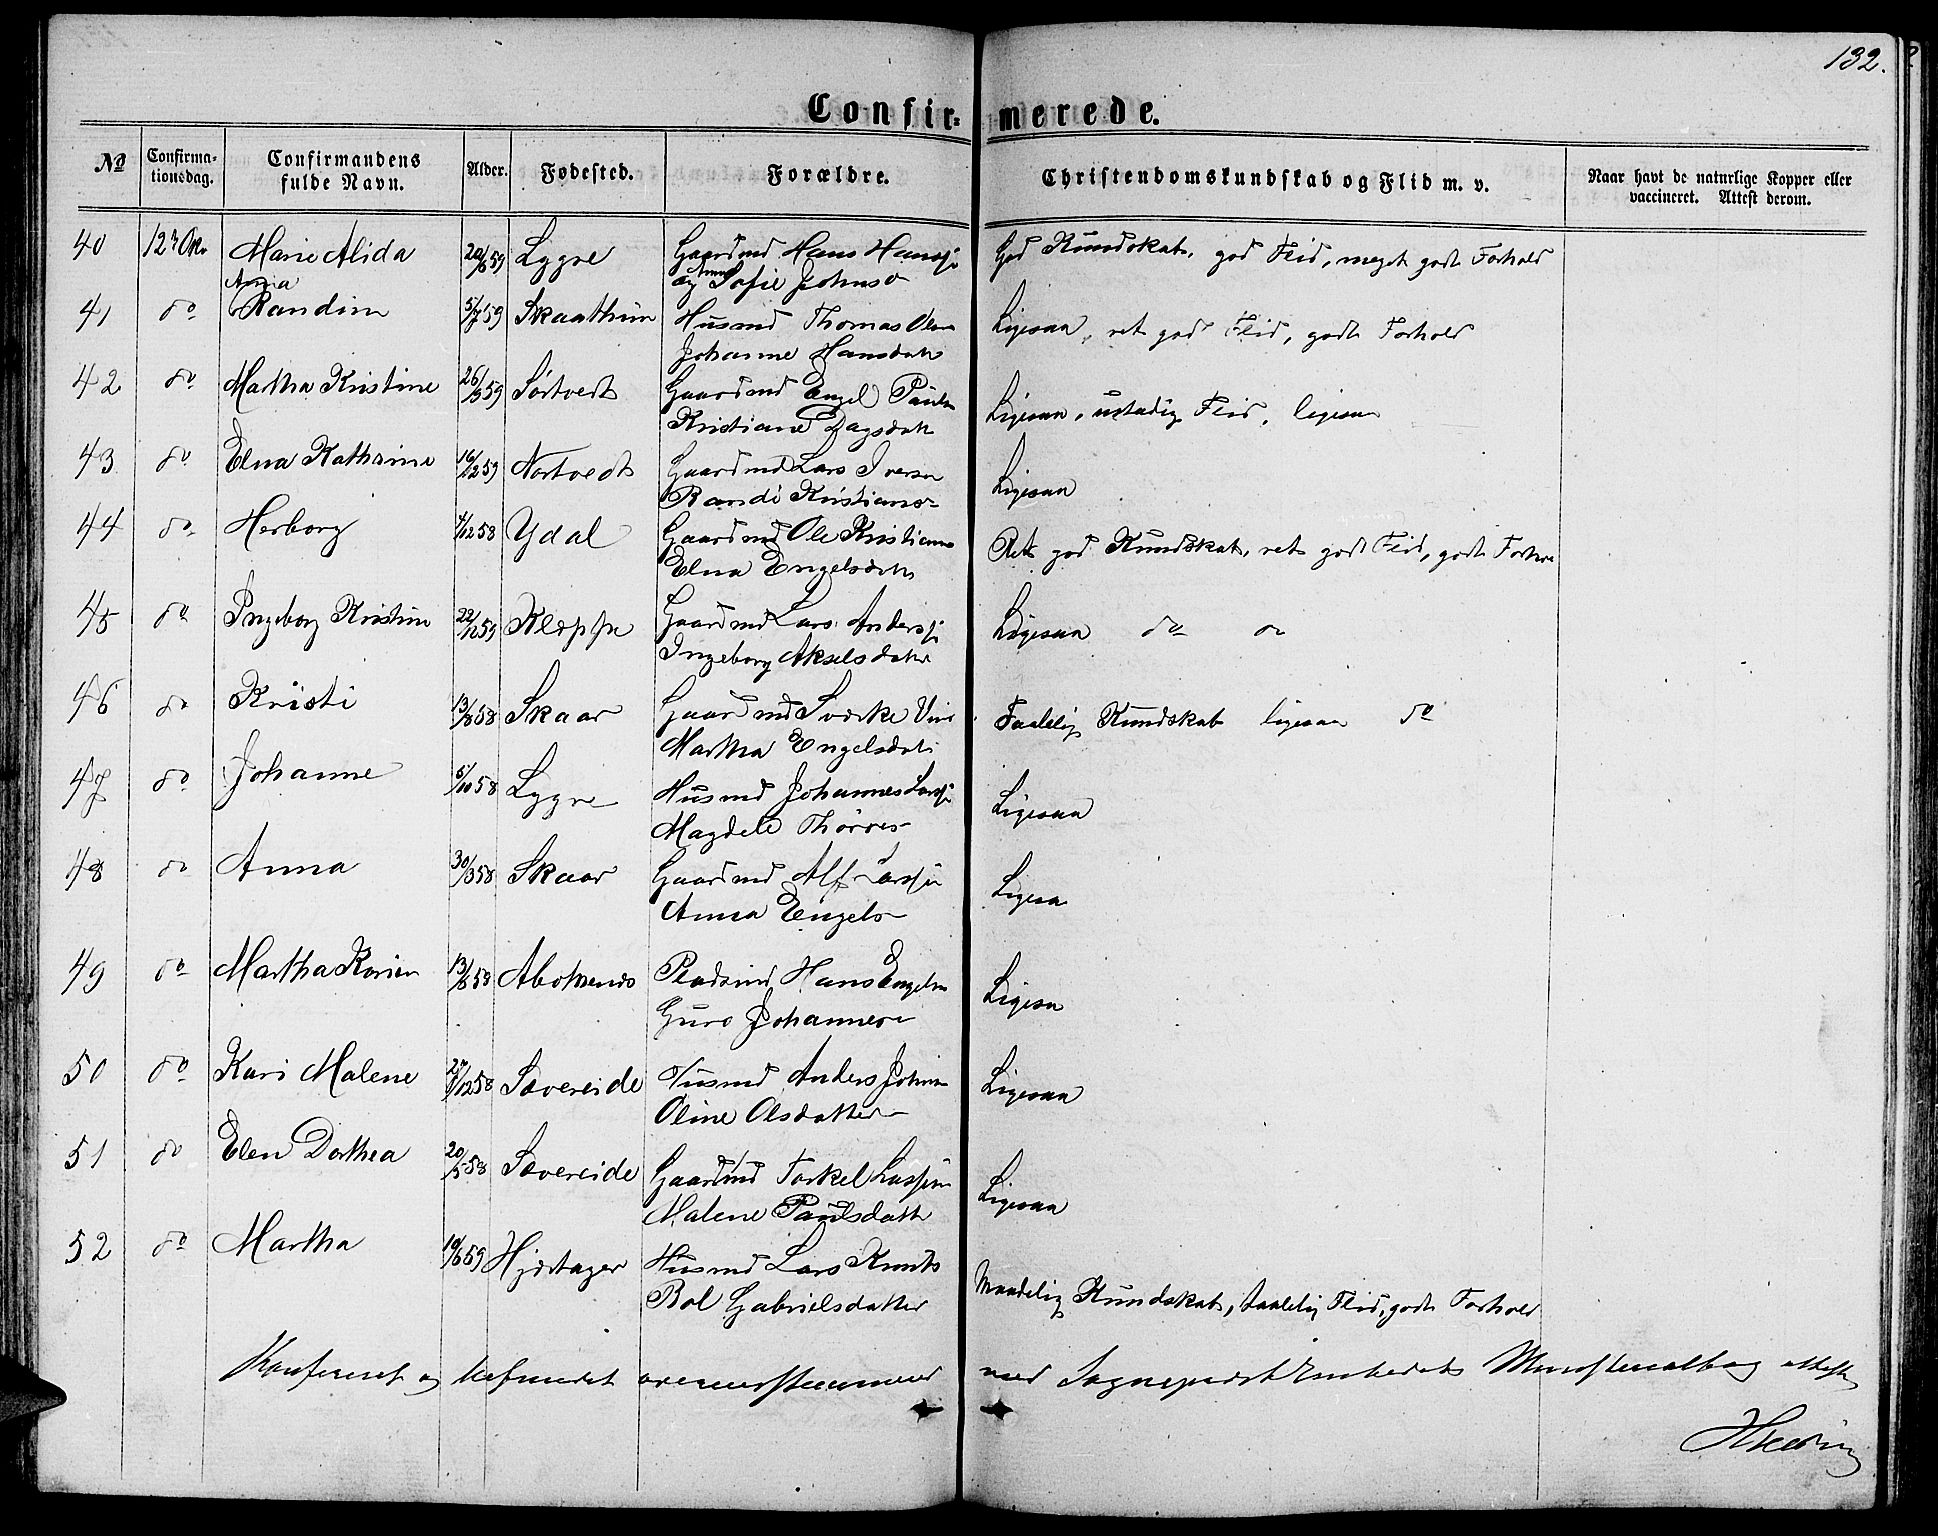 132.
Confir- merede.
No Confirmationsdag. Confirmandens fulde Navn. Alder. Fødested. Forældre. Christendomskundskab og Flid m. v. Naar havt de naturlige Kopper eller vaccineret. Attest derom.
40 12 Okt Marie Alida 20/6 59 Lygre Gaardmd Hans Hansse God Kundskab, god Flid, meget godt Forhold
og Anna Sofie Johnsd
41 do Anna Randine 5/7 59 Skaathun Husmd Thomas Olsen Ligesaa, ret god Flid, godt Forhold
Johanne Hansdatt
42 do Martha Kristine 26/9 59 Sørtvedt Gaardmd Engel Pauls Ligesaa, ustadig Flid, ligesaa
Kristiane Dagsdatt
43 do Elna Kathrine 16/12 59 Nortvedt Gaardmd Lars Iversen Ligesaa
Randi Kristians
44 do Herborg 4/12 58 Ydal Gaardmd Ole Kristians Ret god Kundskab, ret god Flid, godt Forho
Elna Engelsdatt
45 do Ingeborg Kristine 22/12 59 Kleppe Gaardmd Lars Anderss Ligesaa do do
Ingeborg Akselsdatter
46 do Kristi 13/8 58 Skaar Gaardmd Sværke Vin Taalelig Kundskab ligesaa do
Martha Engelsdat
47 do Johanne 5/10 58 Lygre Husmd Johannes Larss Ligesaa
Magdele Thorres
48 do Anna 30/3 58 Skaar Gaardmd Alf Larssen Ligesaa
Anna Engels
49 do Martha Karine 58 Pladsmd Hans Engels Ligesaa
Guro Johannes
50 do Kari Malene 12 58 Sævereide Husmd Anders Johns Ligesaa
Oline Olsdatter
51 do Elen Dorthea 20/5 58 Sævereide Gaardmd Torkel Lassen Ligesaa
Malene Paulsdatt
52 do Martha 10/6 59 Hjertager Husmd Lars Knuts Maadelig Kundskab, taalelig Flid, godt Forhold
Bol Gabrielsdatter
Konfereret og befundet overensstemmende med Sognepræst Embedets Ministerialbog attest